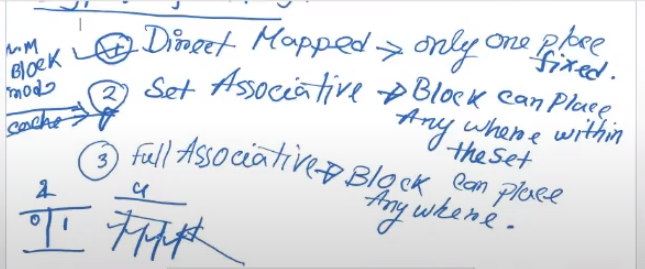 M.M
Block
modo
cache →
① Direct Mapped → only one place
fixed.
② Set Associative → Block can Place
Any where within
the set
③ Full Associative → Block can place
Any where.
2 4
0 1